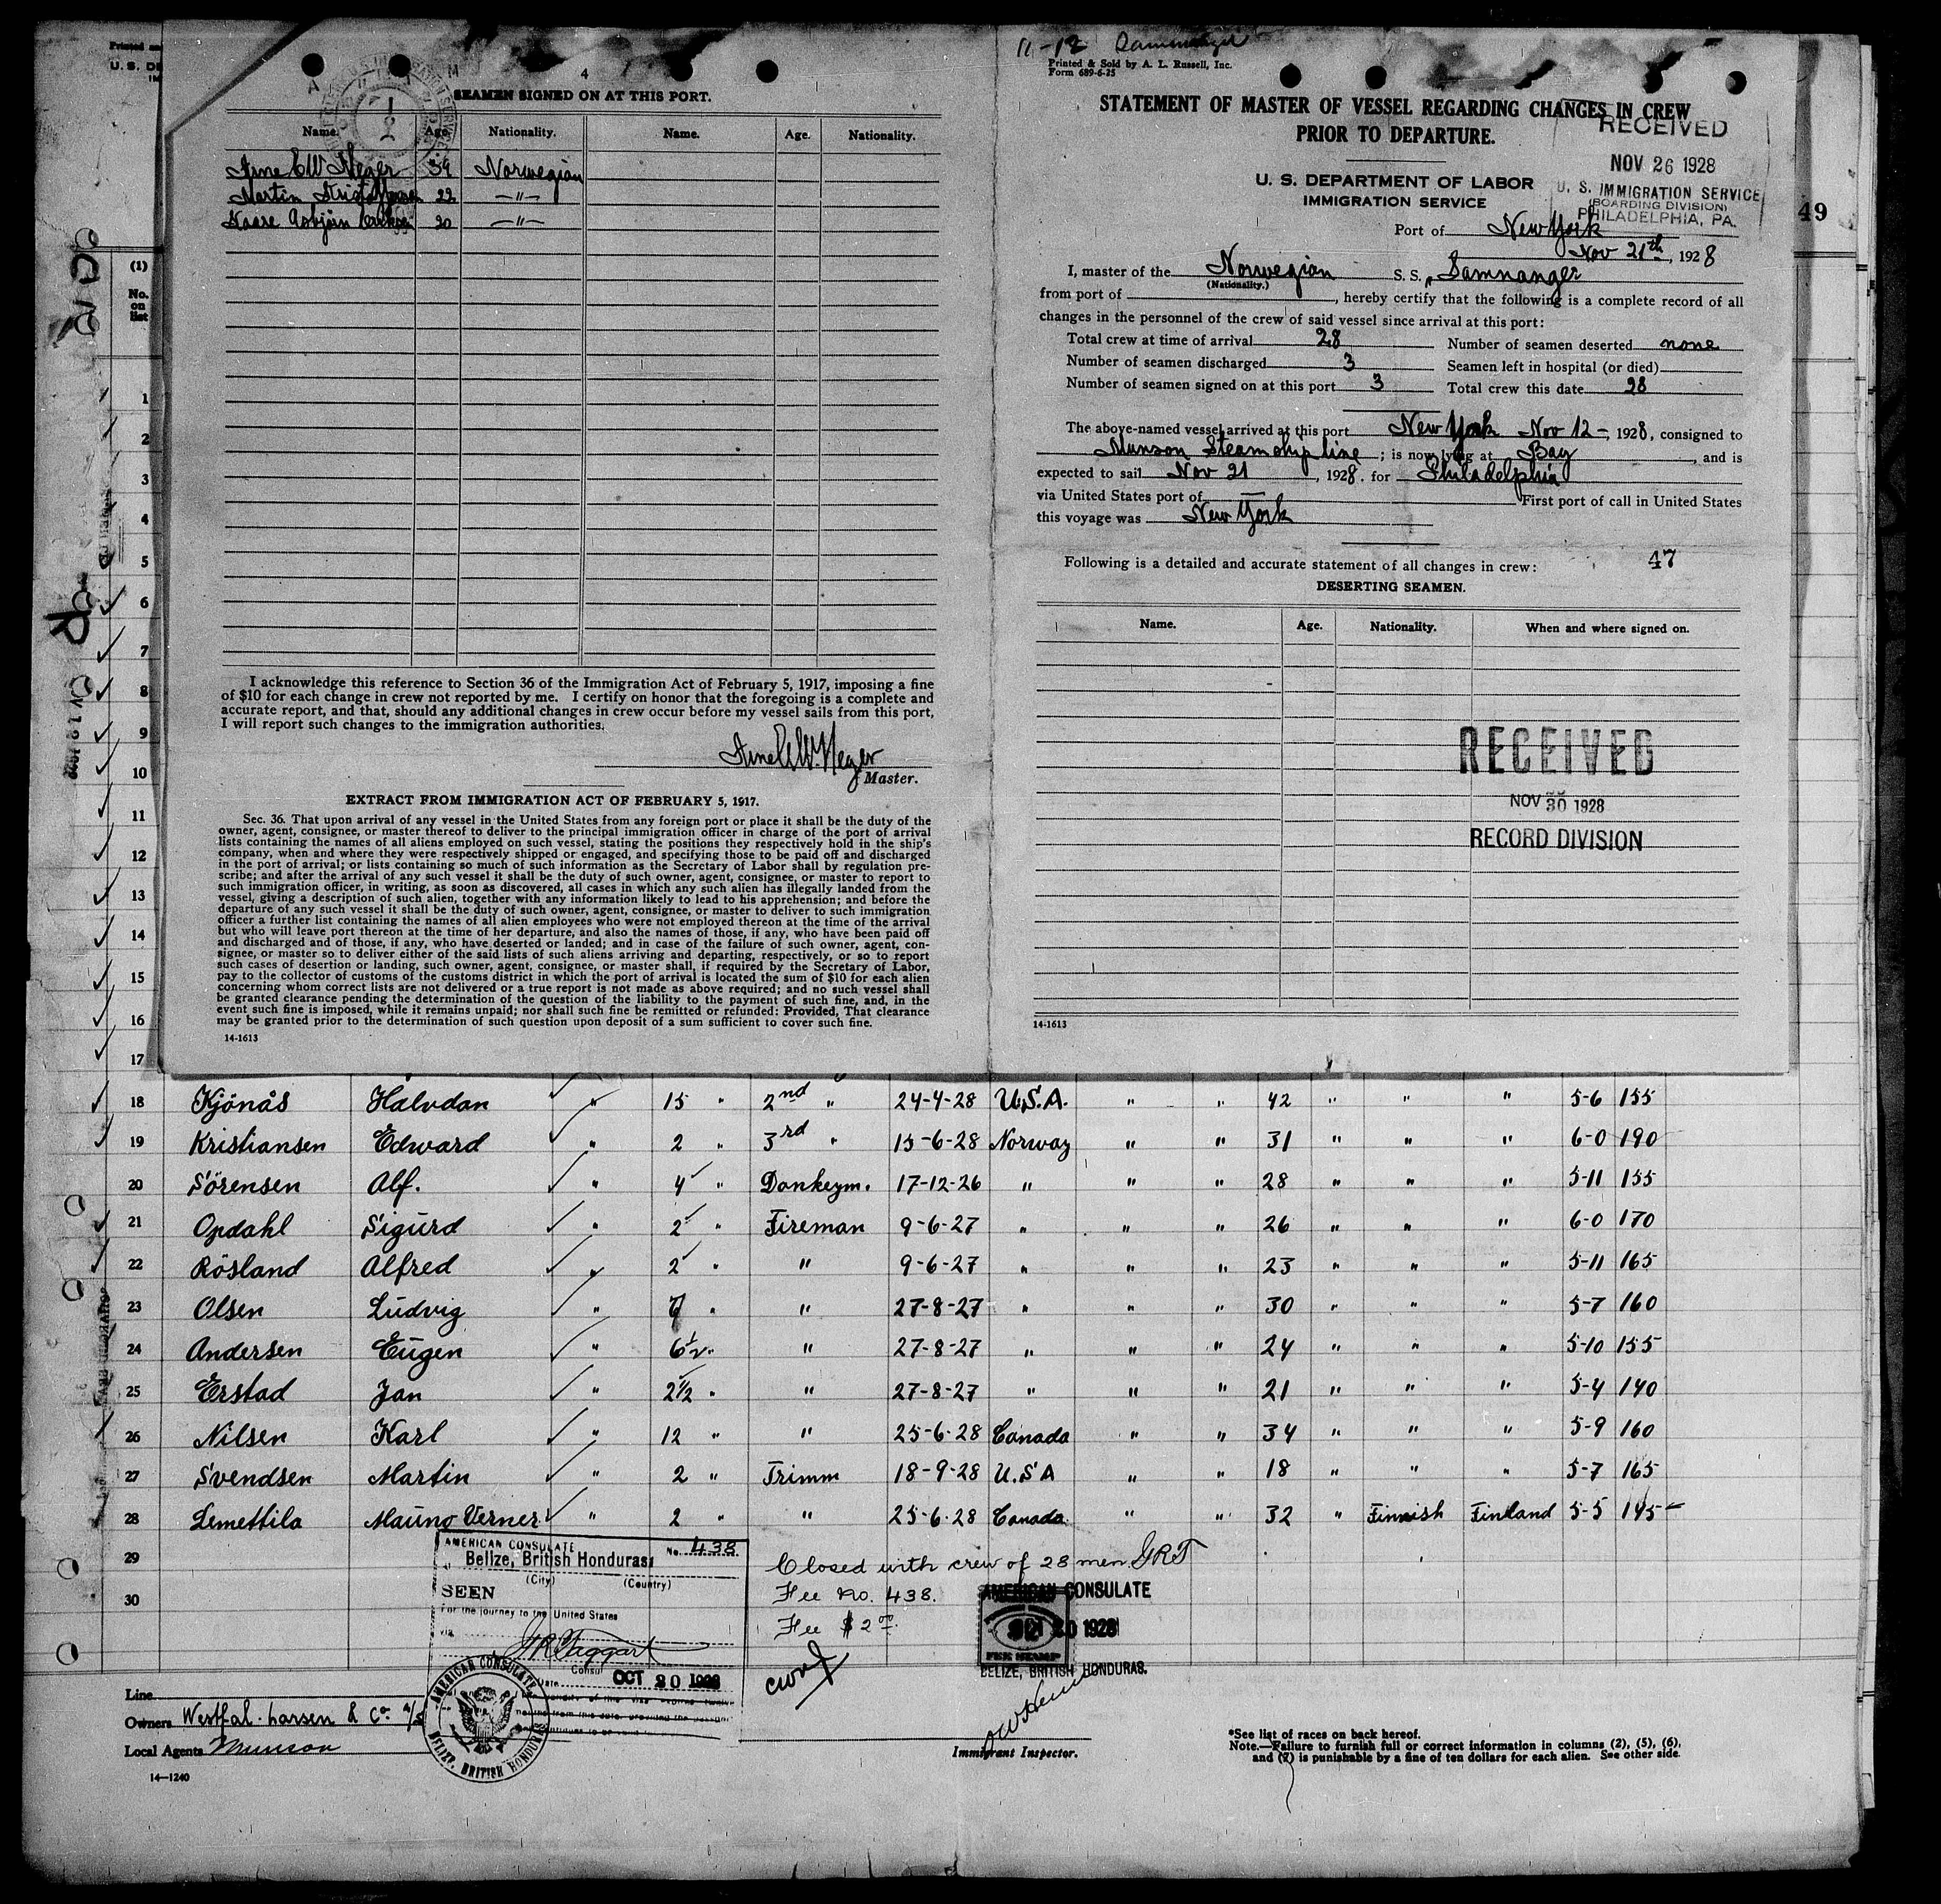 4
SEAMEN SIGNED ON AT THIS PORT.
Name. Age. Nationality. Name. Age. Nationality.
Arne E W Heger 39 Norwegian
Martin 22 —"—
Kaare Asbjörn 20 —"—
I acknowledge this reference to Section 36 of the Immigration Act of February 5, 1917, imposing a fine
of $10 for each change in crew not reported by me. I certify on honor that the foregoing is a complete and
accurate report, and that, should any additional changes in crew occur before my vessel sails from this port,
I will report such changes to the immigration authorities.
Arne E W. Heger
Master.
EXTRACT FROM IMMIGRATION ACT OF FEBRUARY 5, 1917.
Sec. 36. That upon arrival of any vessel in the United States from any foreign port or place it shall be the duty of the
owner, agent, consignee, or master thereof to deliver to the principal immigration officer in charge of the port of arrival
lists containing the names of all aliens employed on such vessel, stating the positions they respectively hold in the ship's
company, when and where they were respectively shipped or engaged, and specifying those to be paid off and discharged
in the port of arrival; or lists containing so much of such information as the Secretary of Labor shall by regulation pre-
scribe; and after the arrival of any such vessel it shall be the duty of such owner, agent, consignee, or master to report to
such immigration officer, in writing, as soon as discovered, all cases in which any such alien has illegally landed from the
vessel, giving a description of such alien, together with any information likely to lead to his apprehension; and before the
departure of any such vessel it shall be the duty of such owner, agent, consignee, or master to deliver to such immigration
officer a further list containing the names of all alien employees who were not employed thereon at the time of the arrival
but who will leave port thereon at the time of her departure, and also the names of those, if any, who have been paid off
and discharged and of those, if any, who have deserted or landed; and in case of the failure of such owner, agent, con-
signee, or master so to deliver either of the said lists of such aliens arriving and departing, respectively, or so to report
such cases of desertion or landing, such owner, agent, consignee, or master shall, if required by the Secretary of Labor,
pay to the collector of customs of the customs district in which the port of arrival is located the sum of $10 for each alien
concerning whom correct lists are not delivered or a true report is not made as above required; and no such vessel shall
be granted clearance pending the determination of the question of the liability to the payment of such fine, and, in the
event such fine is imposed, while it remains unpaid; nor shall such fine be remitted or refunded: Provided, That clearance
may be granted prior to the determination of such question upon deposit of a sum sufficient to cover such fine.
14-1613
11-12 Samnanger
Printed & Sold by A. L. Russell, Inc.
Form 689-6-25
STATEMENT OF MASTER OF VESSEL REGARDING CHANGES IN CREW
PRIOR TO DEPARTURE.
RECEIVED
NOV 26 1928
U. S. IMMIGRATION SERVICE
(BOARDING DIVISION)
PHILADELPHIA, PA.
U. S. DEPARTMENT OF LABOR
IMMIGRATION SERVICE
Port of New York
Nov 21th, 1928
I, master of the Norwegian S. S. Samnanger
(Nationality.)
from port of , hereby certify that the following is a complete record of all
changes in the personnel of the crew of said vessel since arrival at this port:
Total crew at time of arrival 28 Number of seamen deserted none
Number of seamen discharged 3 Seamen left in hospital (or died)
Number of seamen signed on at this port 3 Total crew this date 28
The above-named vessel arrived at this port New York Nov 12-, 1928, consigned to
Munson Steamship line; is now lying at Bay, and is
expected to sail Nov 21, 1928. for Philadelphia
via United States port of — First port of call in United States
this voyage was New York
Following is a detailed and accurate statement of all changes in crew: 47
DESERTING SEAMEN.
Name. Age. Nationality. When and where signed on.
RECEIVED
NOV 30 1928
RECORD DIVISION
14-1613
49
(1)
No.
on
list
1
2
3
4
5
6
7
8
9
10
11
12
13
14
15
16
17
18 Kjönås Halvdan " 15 " 2nd " 24-4-28 U.S.A. " " 42 " " " 5-6 155
19 Kristiansen Edward " 2 " 3rd " 15-6-28 Norway " " 31 " " " 6-0 190
20 Sörensen Alf. " 4 " Donkeym. 17-12-26 " " " 28 " " " 5-11 155
21 Opdahl Sigurd " 2 " Fireman 9-6-27 " " " 26 " " " 6-0 170
22 Rösland Alfred " 2 " " 9-6-27 " " " 23 " " " 5-11 165
23 Olsen Ludvig " 7 " " 27-8-27 " " " 30 " " " 5-7 160
24 Andersen Eugen " 6½ " " 27-8-27 " " " 24 " " " 5-10 155
25 Erstad Jan " 2½ " " 27-8-27 " " " 21 " " " 5-4 140
26 Nilsen Karl " 12 " " 25-6-28 Canada " " 34 " " " 5-9 160
27 Svendsen Martin " 2 " Trimm 18-9-28 U.S.A " " 18 " " " 5-7 165
28 Lemettila Mauno Verner " 2 " " 25-6-28 Canada " " 32 " Finnish Finland 5-5 145
29
30
AMERICAN CONSULATE No. 438
Belize, British Honduras
(City) (Country)
SEEN
For the journey to the United States
via
J R Taggart
Consul
Date OCT 20 1928
AMERICAN CONSULATE
BELIZE, BRITISH HONDURAS
Closed with crew of 28 men JRT
Fee No. 438.
Fee $2.00
AMERICAN CONSULATE
20 1928
FEE STAMP
BELIZE, BRITISH HONDURAS.
Line
Owners Westfal-Larsen & Co. A/S
Local Agents Munson
14-1240
Immigrant Inspector.
*See list of races on back hereof.
Note.—Failure to furnish full or correct information in columns (2), (5), (6),
and (7) is punishable by a fine of ten dollars for each alien. See other side.